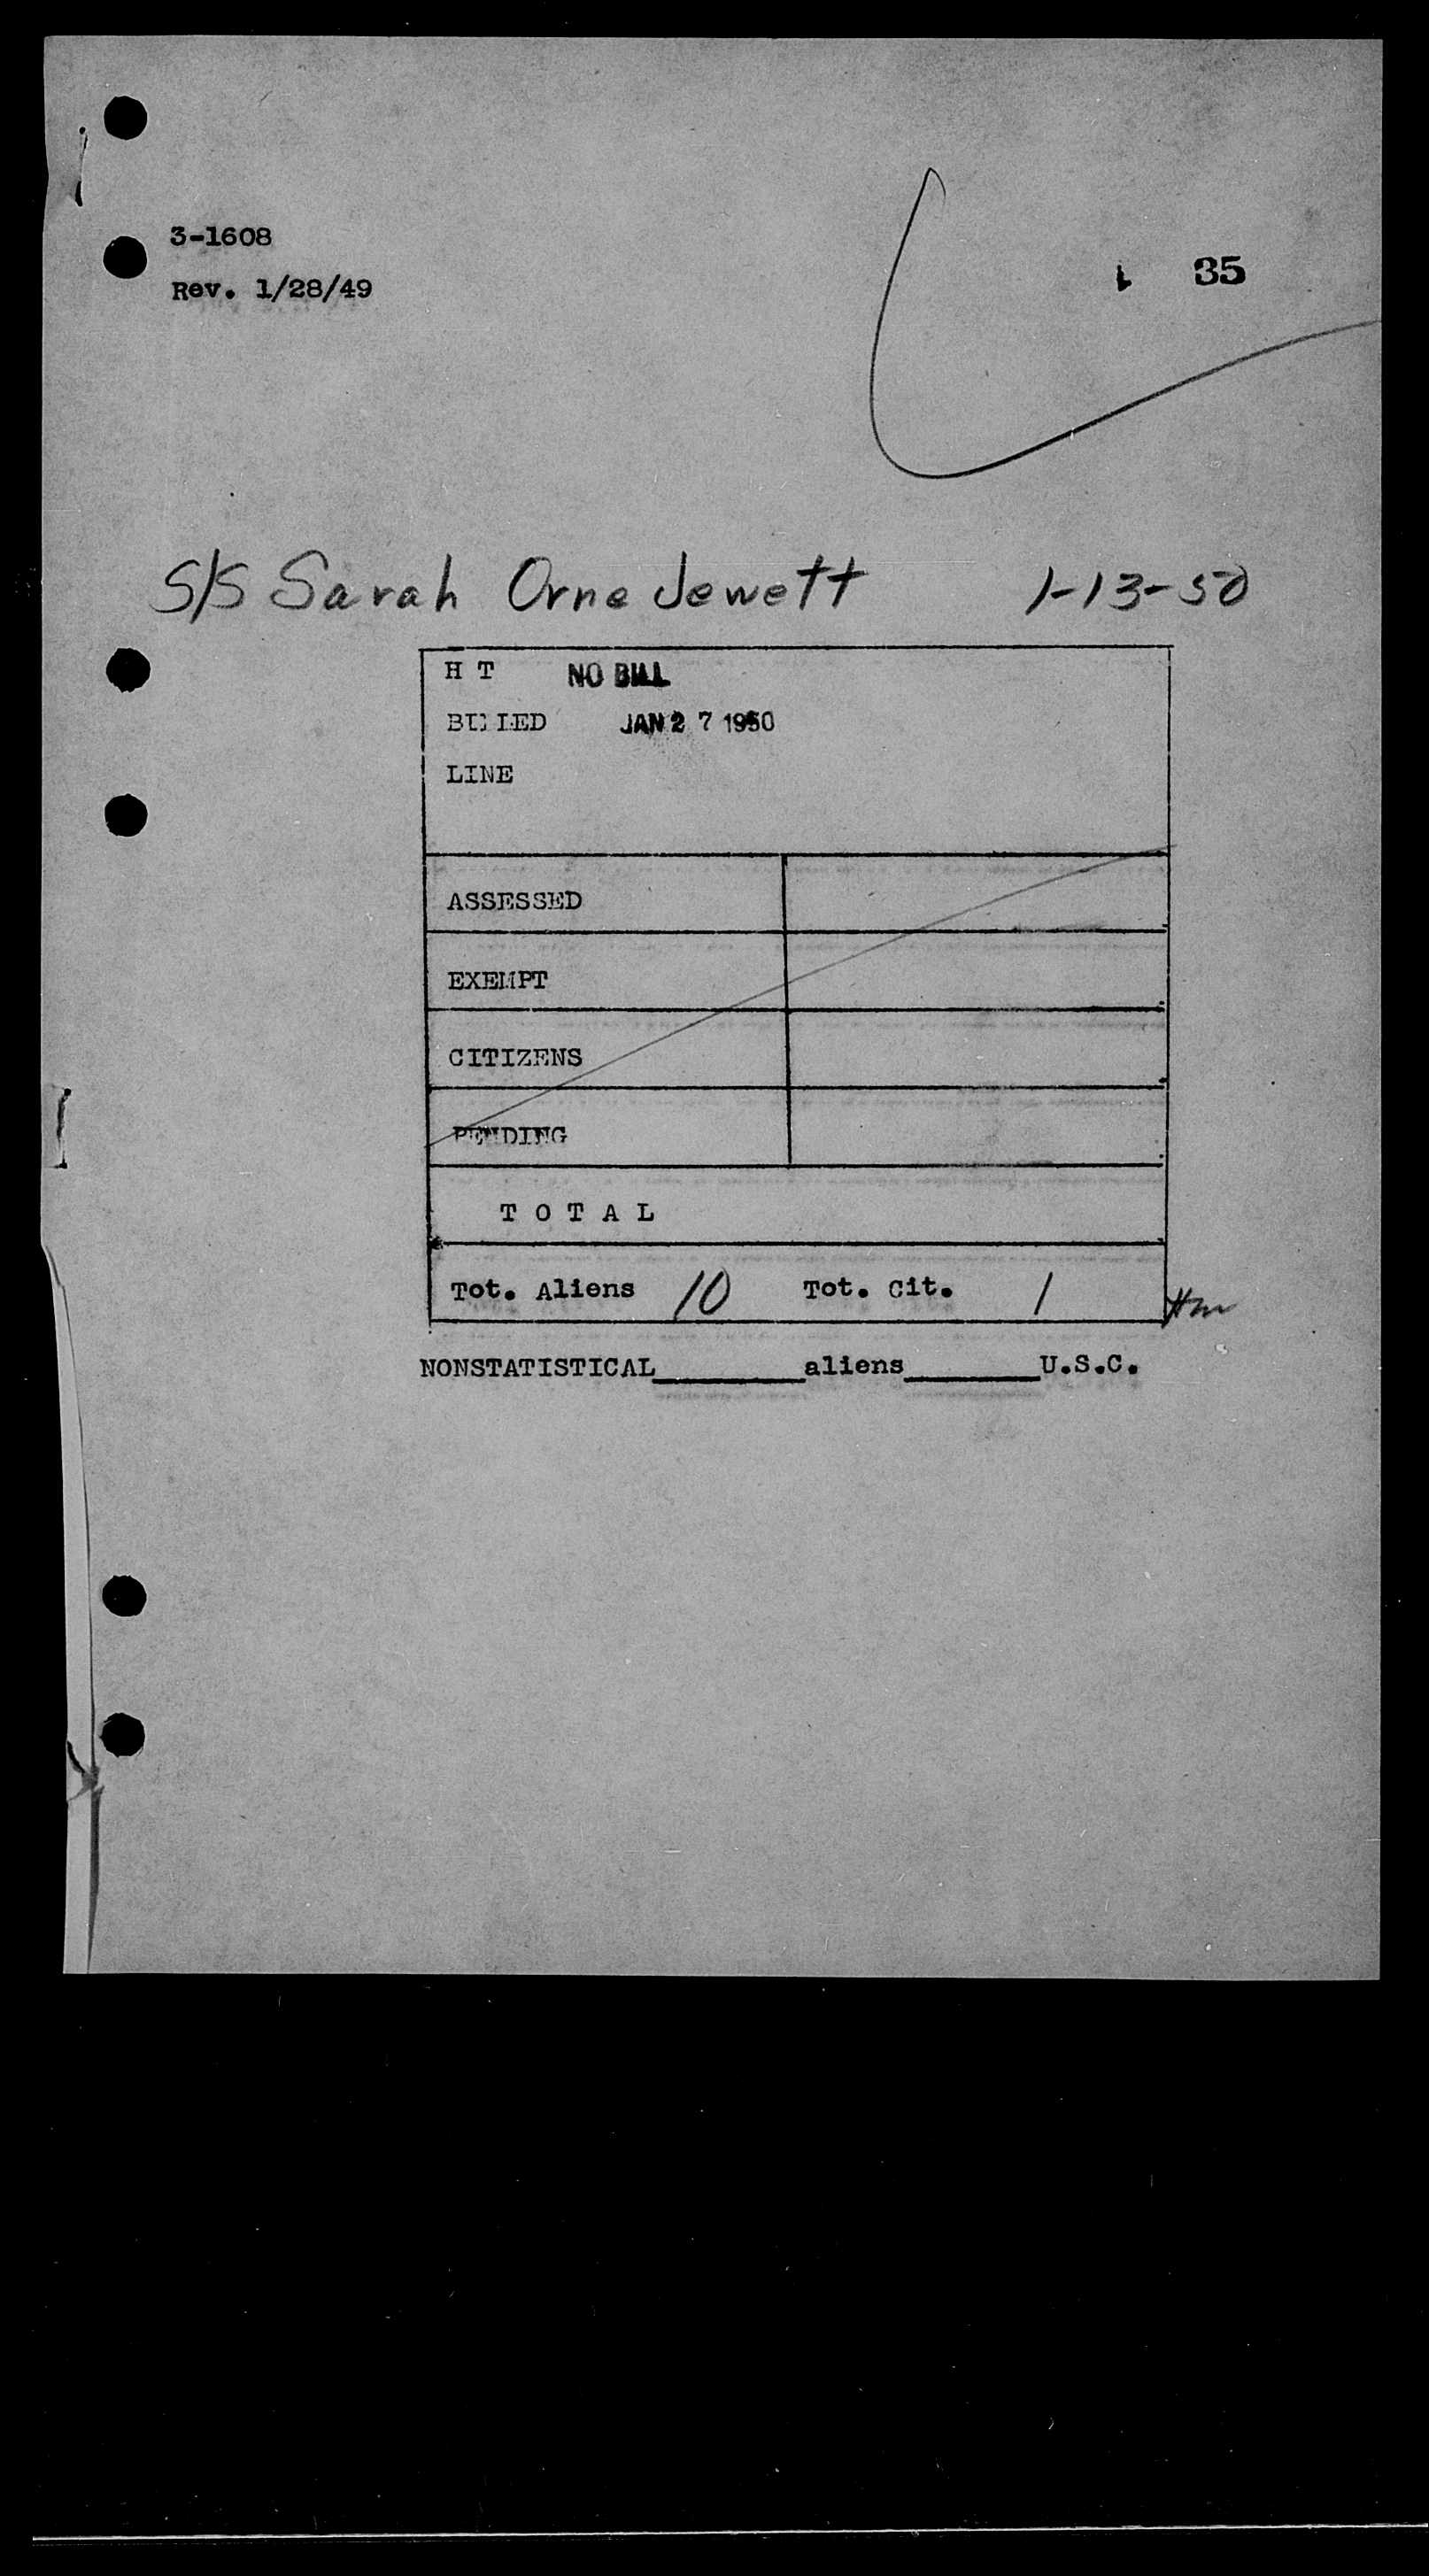 3-1608
35
Rev. 1/28/49
S/S Sarah Orne Jewett 1-13-50
H T NO BILL
BILLED JAN 27 1950
LINE
ASSESSED
EXEMPT
CITIZENS
PENDING
T O T A L
Tot. Aliens 10 Tot. Cit. 1
NONSTATISTICAL________aliens________U.S.C.